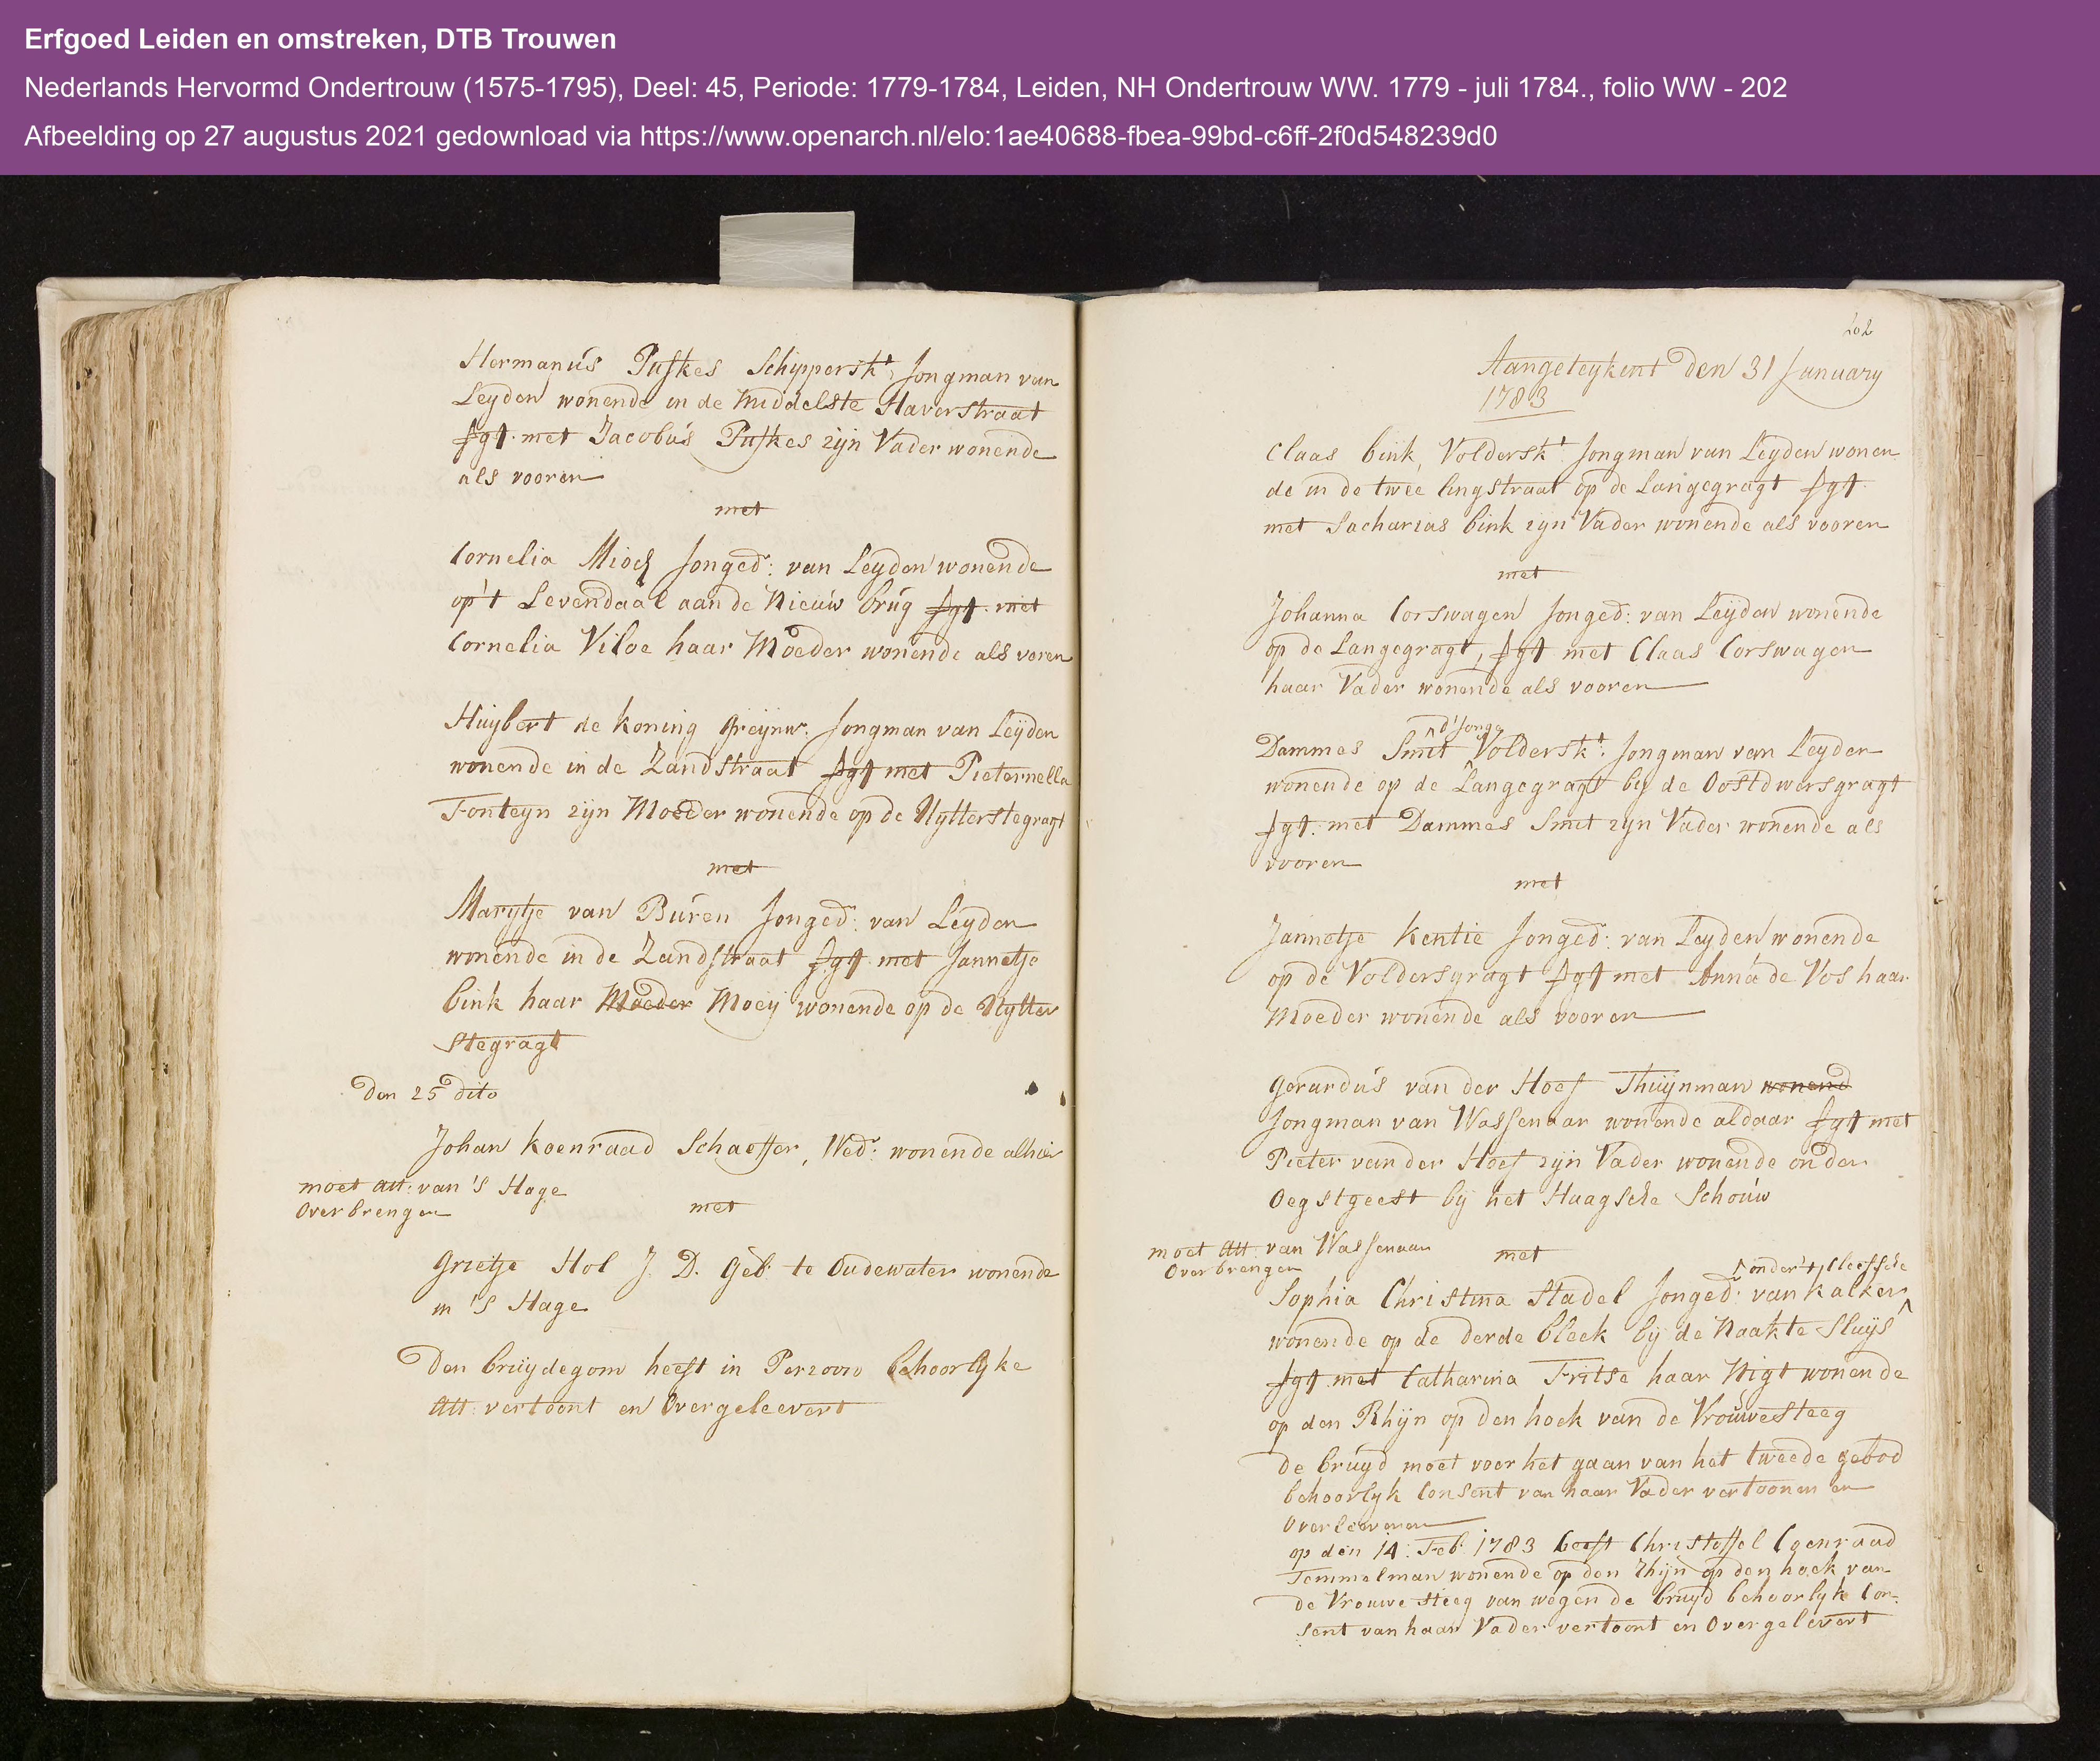 Erfgoed Leiden en omstreken, DTB Trouwen
Nederlands Hervormd Ondertrouw (1575-1795), Deel: 45, Periode: 1779-1784, Leiden, NH Ondertrouw WW. 1779 - juli 1784., folio WW - 202
Afbeelding op 27 augustus 2021 gedownload via https://www.openarch.nl/elo:1ae40688-fbea-99bd-c6ff-2f0d548239d0
Hermanus Puskes Schipperskt. Jongman van
Leyden wonende in de Middelste Haverstraat
Sgt. met Jacobus Puskes zijn Vader wonende
als vooren
met
Cornelia Mioch Jonged: van Leyden wonende
op't Levendaal aan de Nieuw brug Sgt. met
Cornelia Viloe haar Moeder wonende als voren
Huybert de Koning Greynw. Jongman van Leyden
wonende in de Zandstraat Sgt met Pieternella
Fonteyn zijn Moeder wonende op de Uytterstegragt
met
Marytje van Buren Jonged: van Leyden
wonende in de Zandstraat Sgt met Jannetje
bink haar Moeder Moeij wonende op de Uytter
Stegragt
Den 25 dito
Johan Koenraad Schaeffer, Wedr: wonende alhier
moet Att: van 's Hage
Overbrengen
met
Grietje Hol J. D. Geb: te Oudewater wonende
in 's Hage
Den bruydegom heeft in Perzoon behoorlyke
Att: vertoont en Overgeleevert
202
Aangeteykent den 31 January
1783
Claas bink, Volderskt: Jongman van Leyden wonen
de in de twee lingstraat op de Langegragt Sgt
met Sacharias bink zijn Vader wonende als vooren
met
Johanna Corswagen Jonged: van Leyden wonende
op de Langegragt, Sgt met Claas Corswagen
haar Vader wonende als vooren
d'Jonge
Dammes Smit Volderskt: Jongman van Leyden
wonende op de Langegragt by de Oostdwersgragt
Sgt: met Dammes Smit zijn Vader wonende als
vooren
met
Jannetje Kentie Jonged: van Leyden wonende
op de Voldersgragt Sgt met Anna de Vos haar
Moeder wonende als vooren
Gerardus van der Hoef Thuijnman wonend
Jongman van Wassenaar wonende aldaar Sgt met
Pieter van der Hoef zijn Vader wonende onder
Oegstgeest by het Haagsche Schouw
moet Att: van Wassenaar
Overbrengen
met
onder 't Cleefsche
Sophia Christina Stadel Jonged: van Kalker
wonende op de derde bleek by de Naakte Sluys
Sgt met Catharina Fritse haar Nigt wonende
op den Rhijn op den hoek van de Vrouwesteeg
de bruyd moet voor het gaan van het tweede gebod
behoorlyk Consent van haar Vader vertoonen en
Overleeveren
op den 14: Feb: 1783 heeft Christoffel Coenraad
Temmelman wonende op den Rhijn op den hoek van
de Vrouwe steeg van wegen de bruyd behoorlyk Con-
sent van haar Vader vertoont en Overgelevert